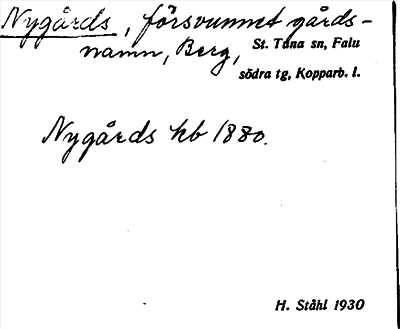 Nygårds, försvunnet gårds-
namn, Berg, St. Tuna sn, Falu
södra tg, Kopparb. l.
Nygårds kb 1880.
H. Ståhl 1930